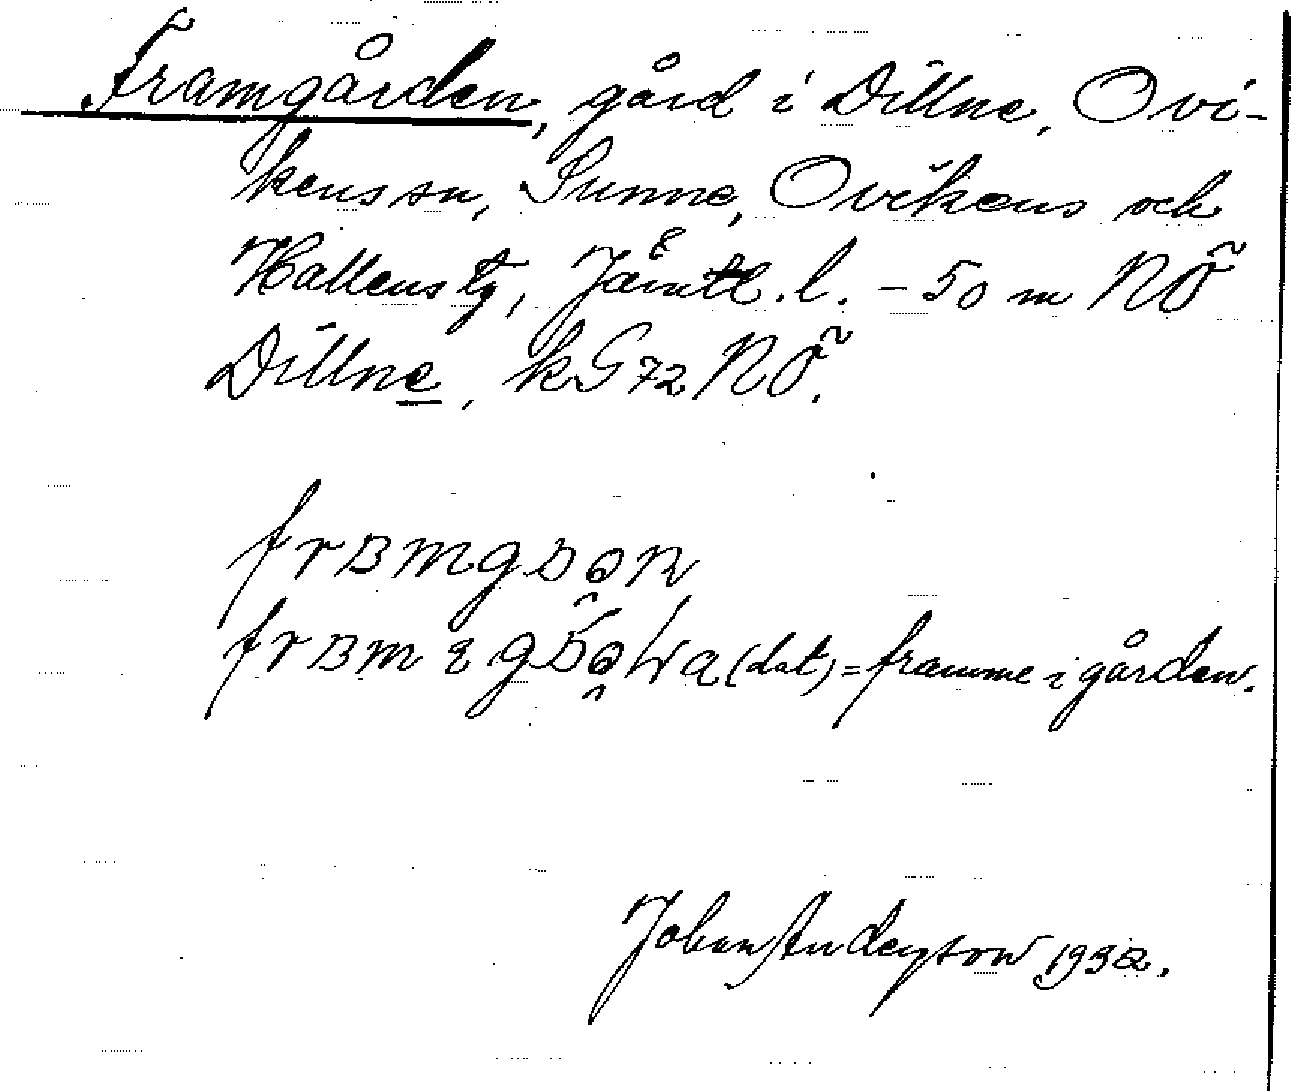 Framgården, gård i Dillne, Ovi-
kens sn, Sunne, Ovikens och
Hallens tg, Jämtl. l. - 50 m NÖ
Dillne, kG 72 NÖ.
(dat) = framme i gården.
Johan Anderson 1932.